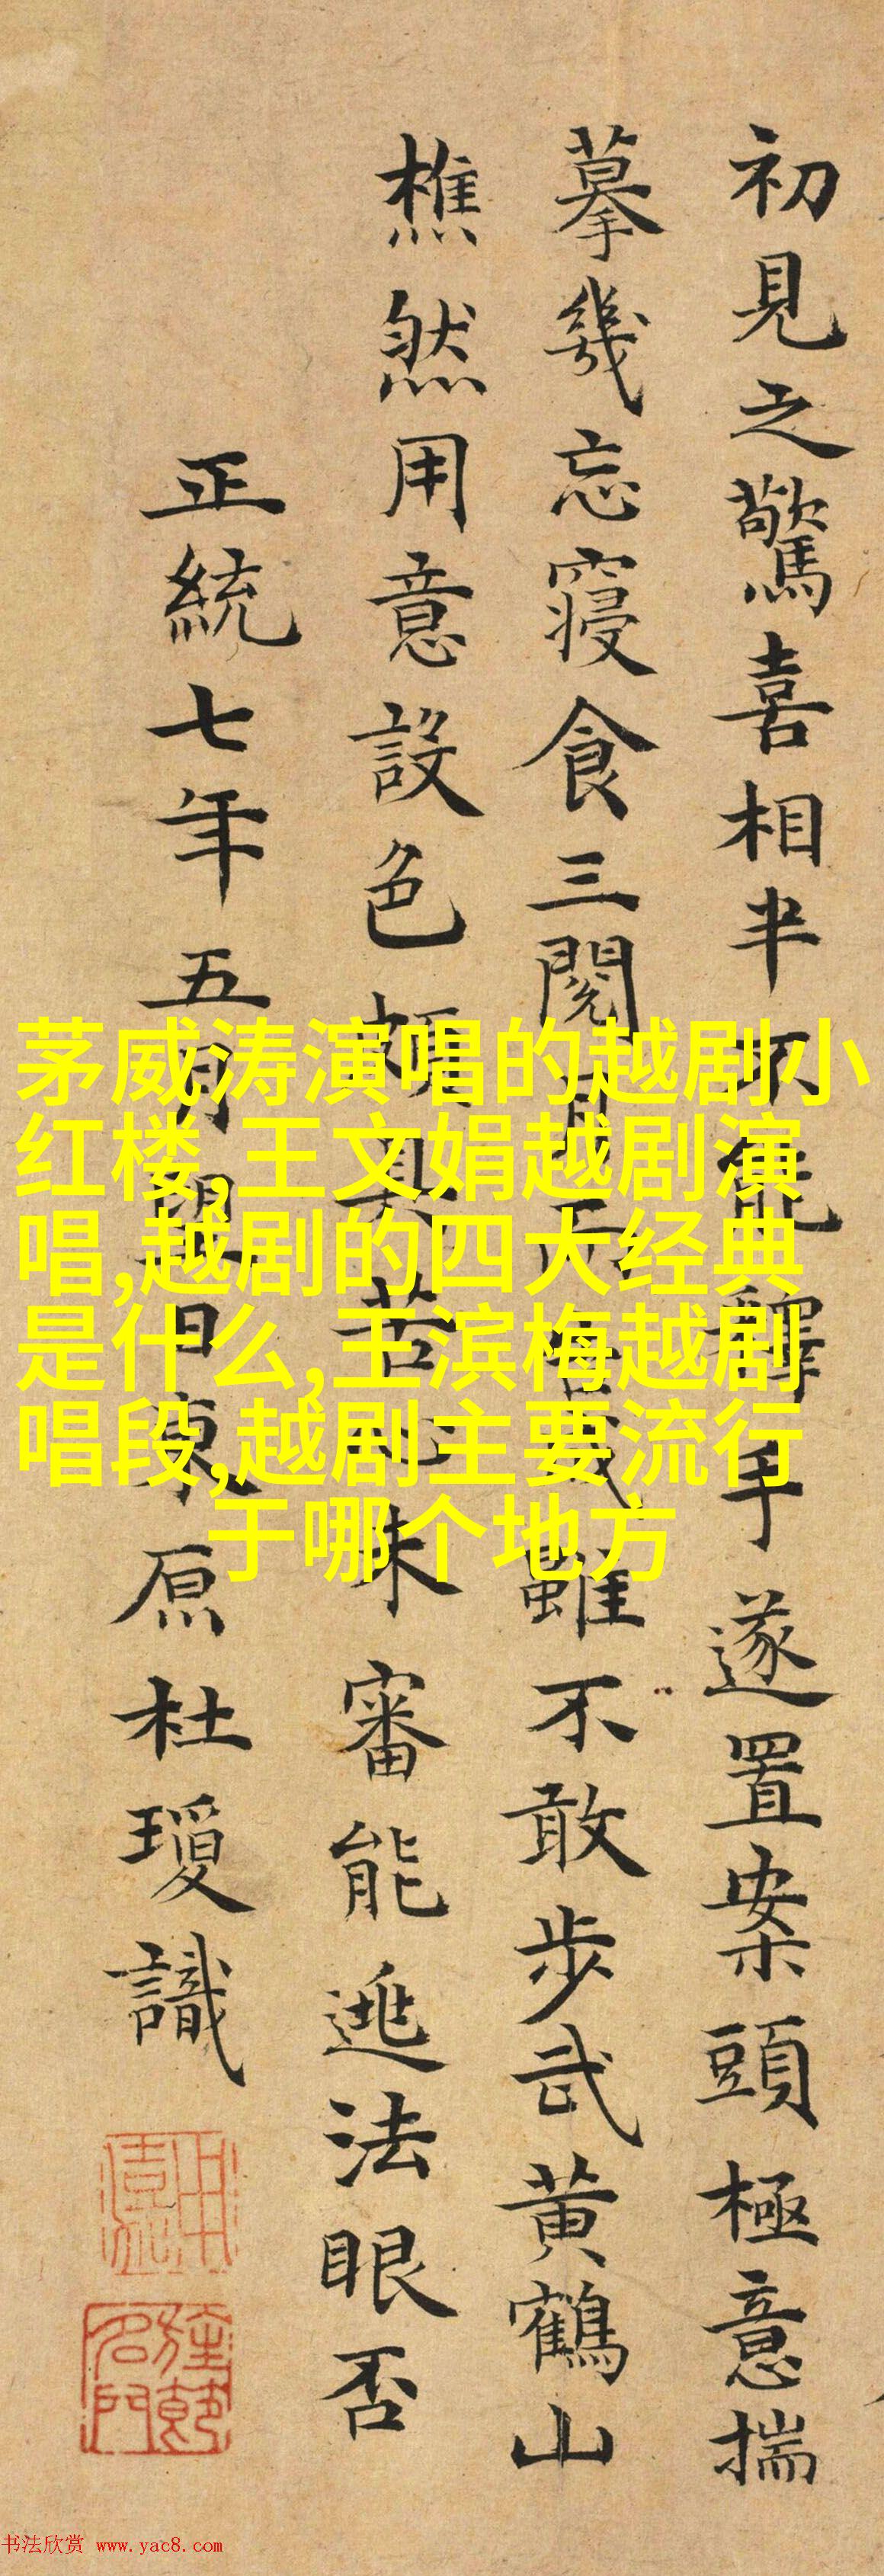 初見之驚喜相半不能釋手遂置案頭極意揣
摹幾忘寢食三閱月而成雖不敢步武黃鶴山
樵然用意設色頗具苦心未審能逃法眼否
正統七年五月望日東原杜瓊識
茅威涛演唱的越剧小
红楼,王文娟越剧演
唱,越剧的四大经典
是什么,王滨梅越剧
唱段,越剧主要流行
于哪个地方
书法欣赏 www.yac8.com